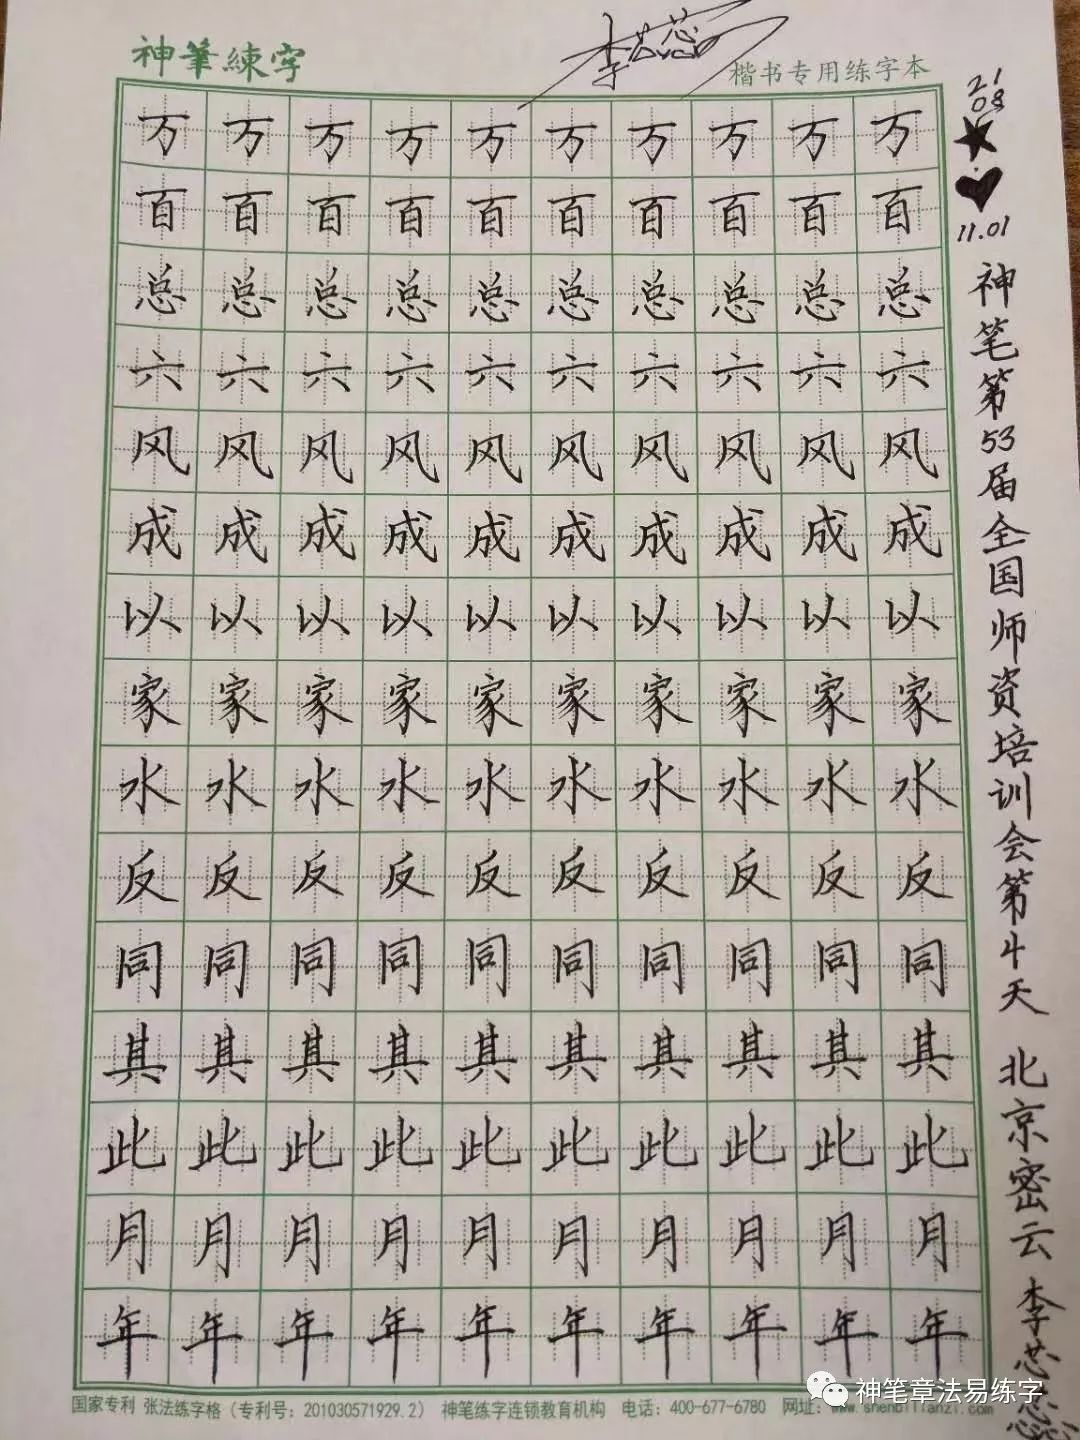 神筆練字
李芯蕊
楷书专用练字本
21
08
11.01
万万万万万万万万万万
百百百百百百百百百百
总总总总总总总总总总
六六六六六六六六六六
风风风风风风风风风风
成成成成成成成成成成
以以以以以以以以以以
家家家家家家家家家家
水水水水水水水水水水
反反反反反反反反反反
同同同同同同同同同同
其其其其其其其其其其
此此此此此此此此此此
月月月月月月月月月月
年年年年年年年年年年
神笔第53届全国师资培训会第4天 北京密云 李芯蕊
国家专利 张法练字格（专利号：201030571929.2） 神笔练字连锁教育机构 电话：400-677-6780 网址：www.shenbilianzi.com
神笔章法易练字